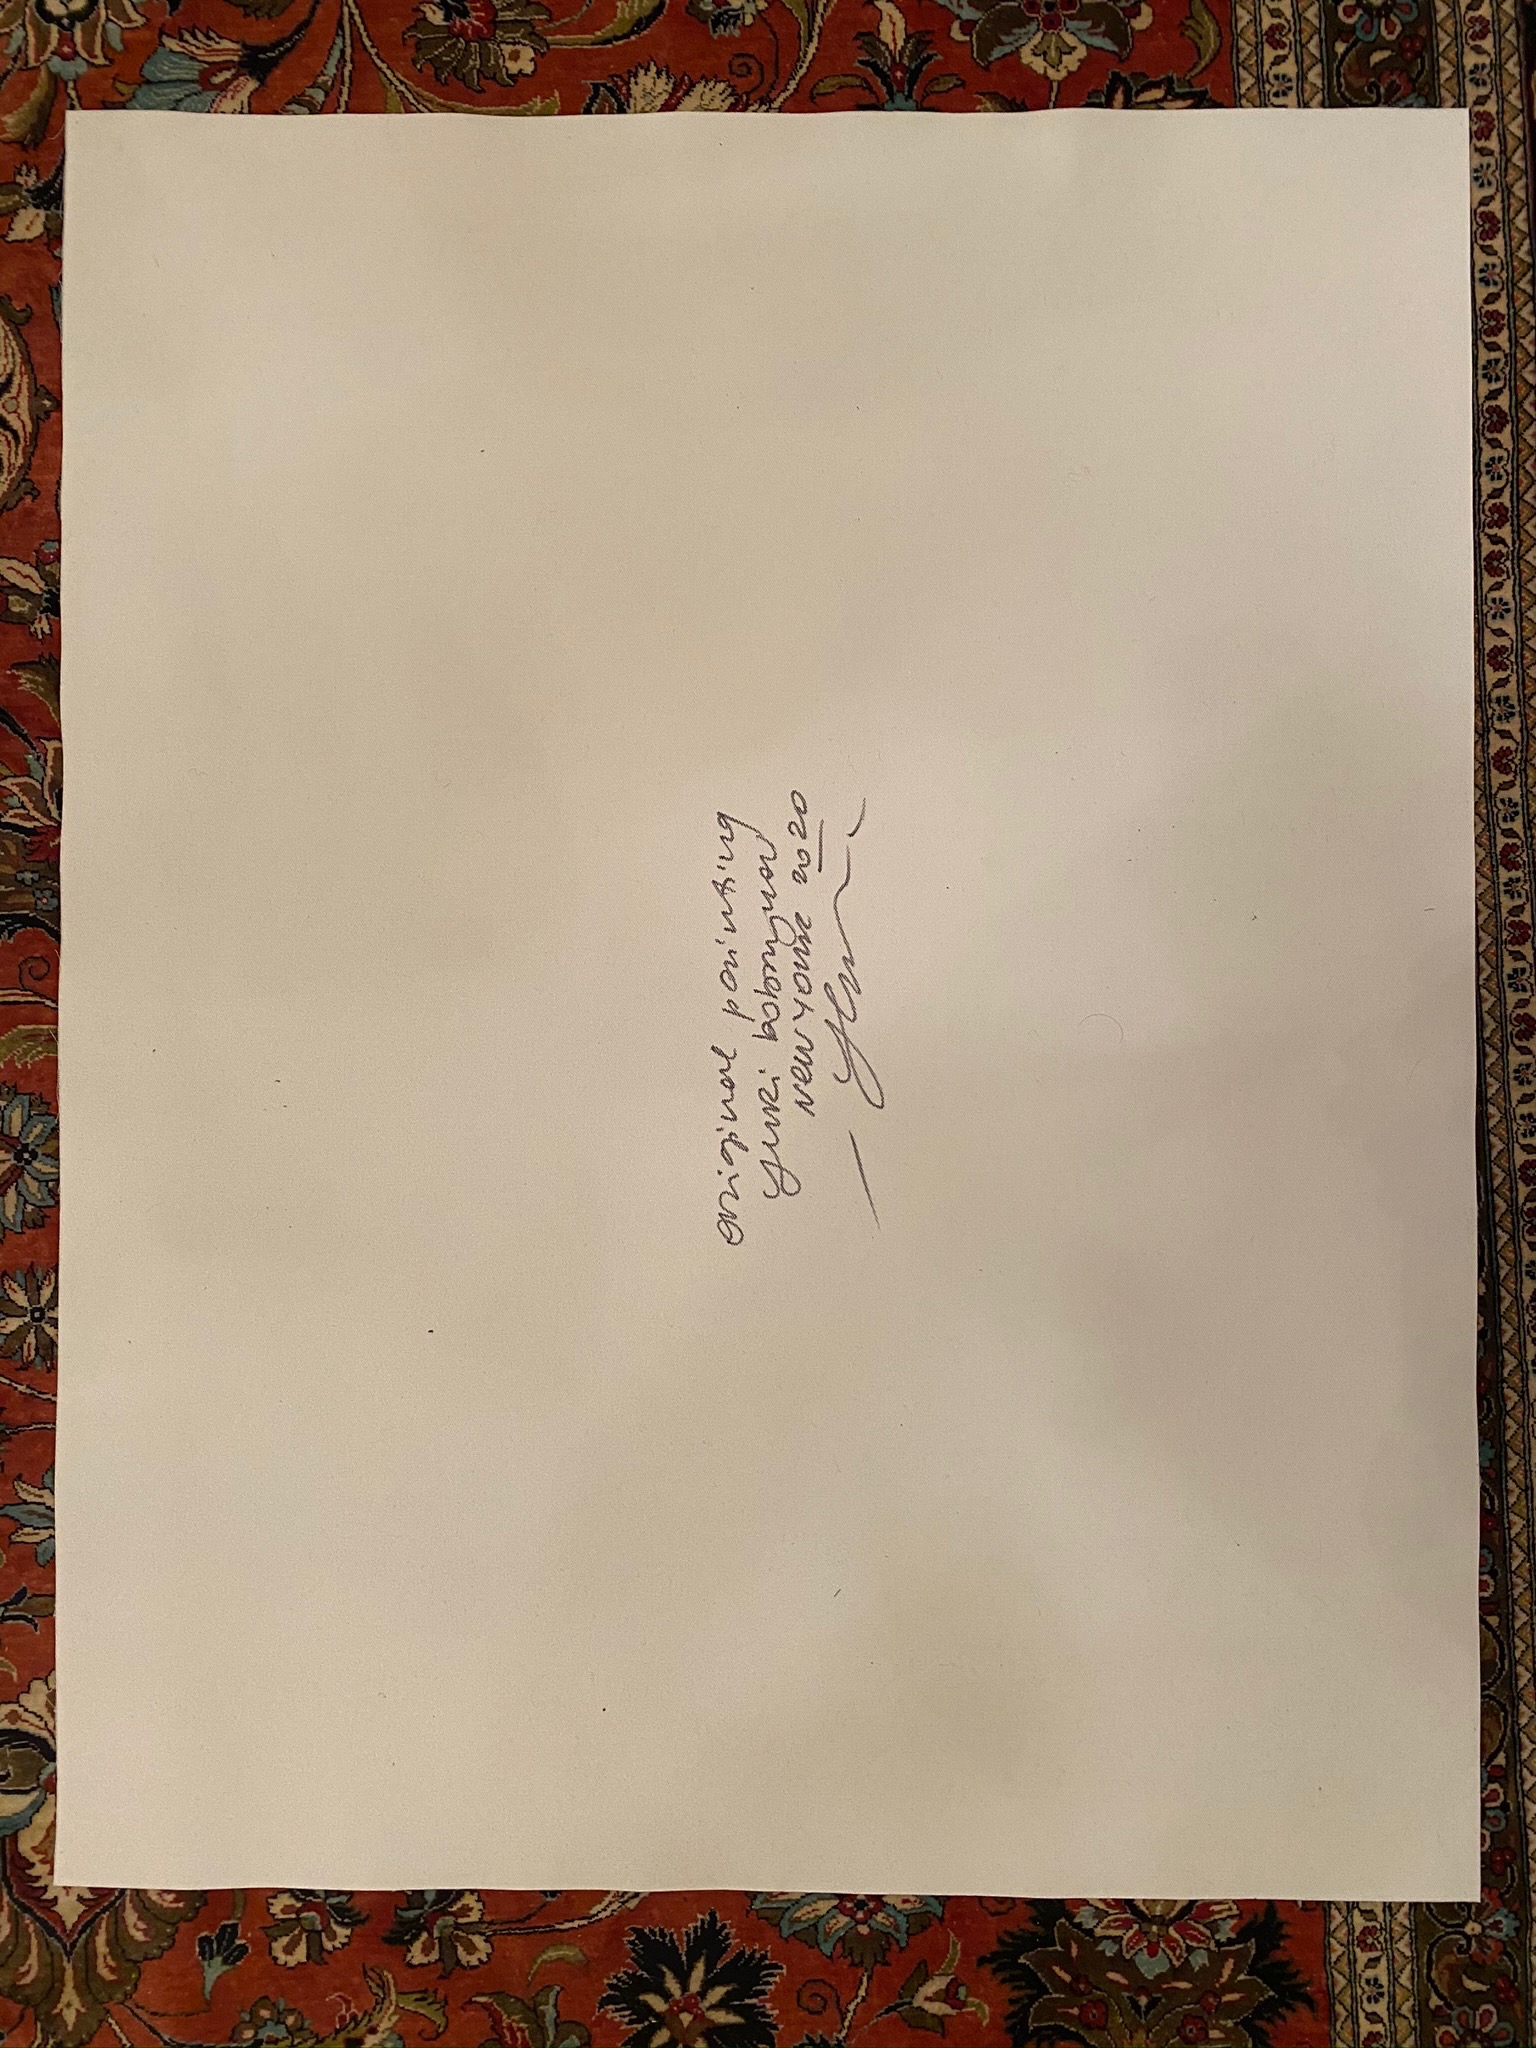 original painting
Yuri
New York 2020